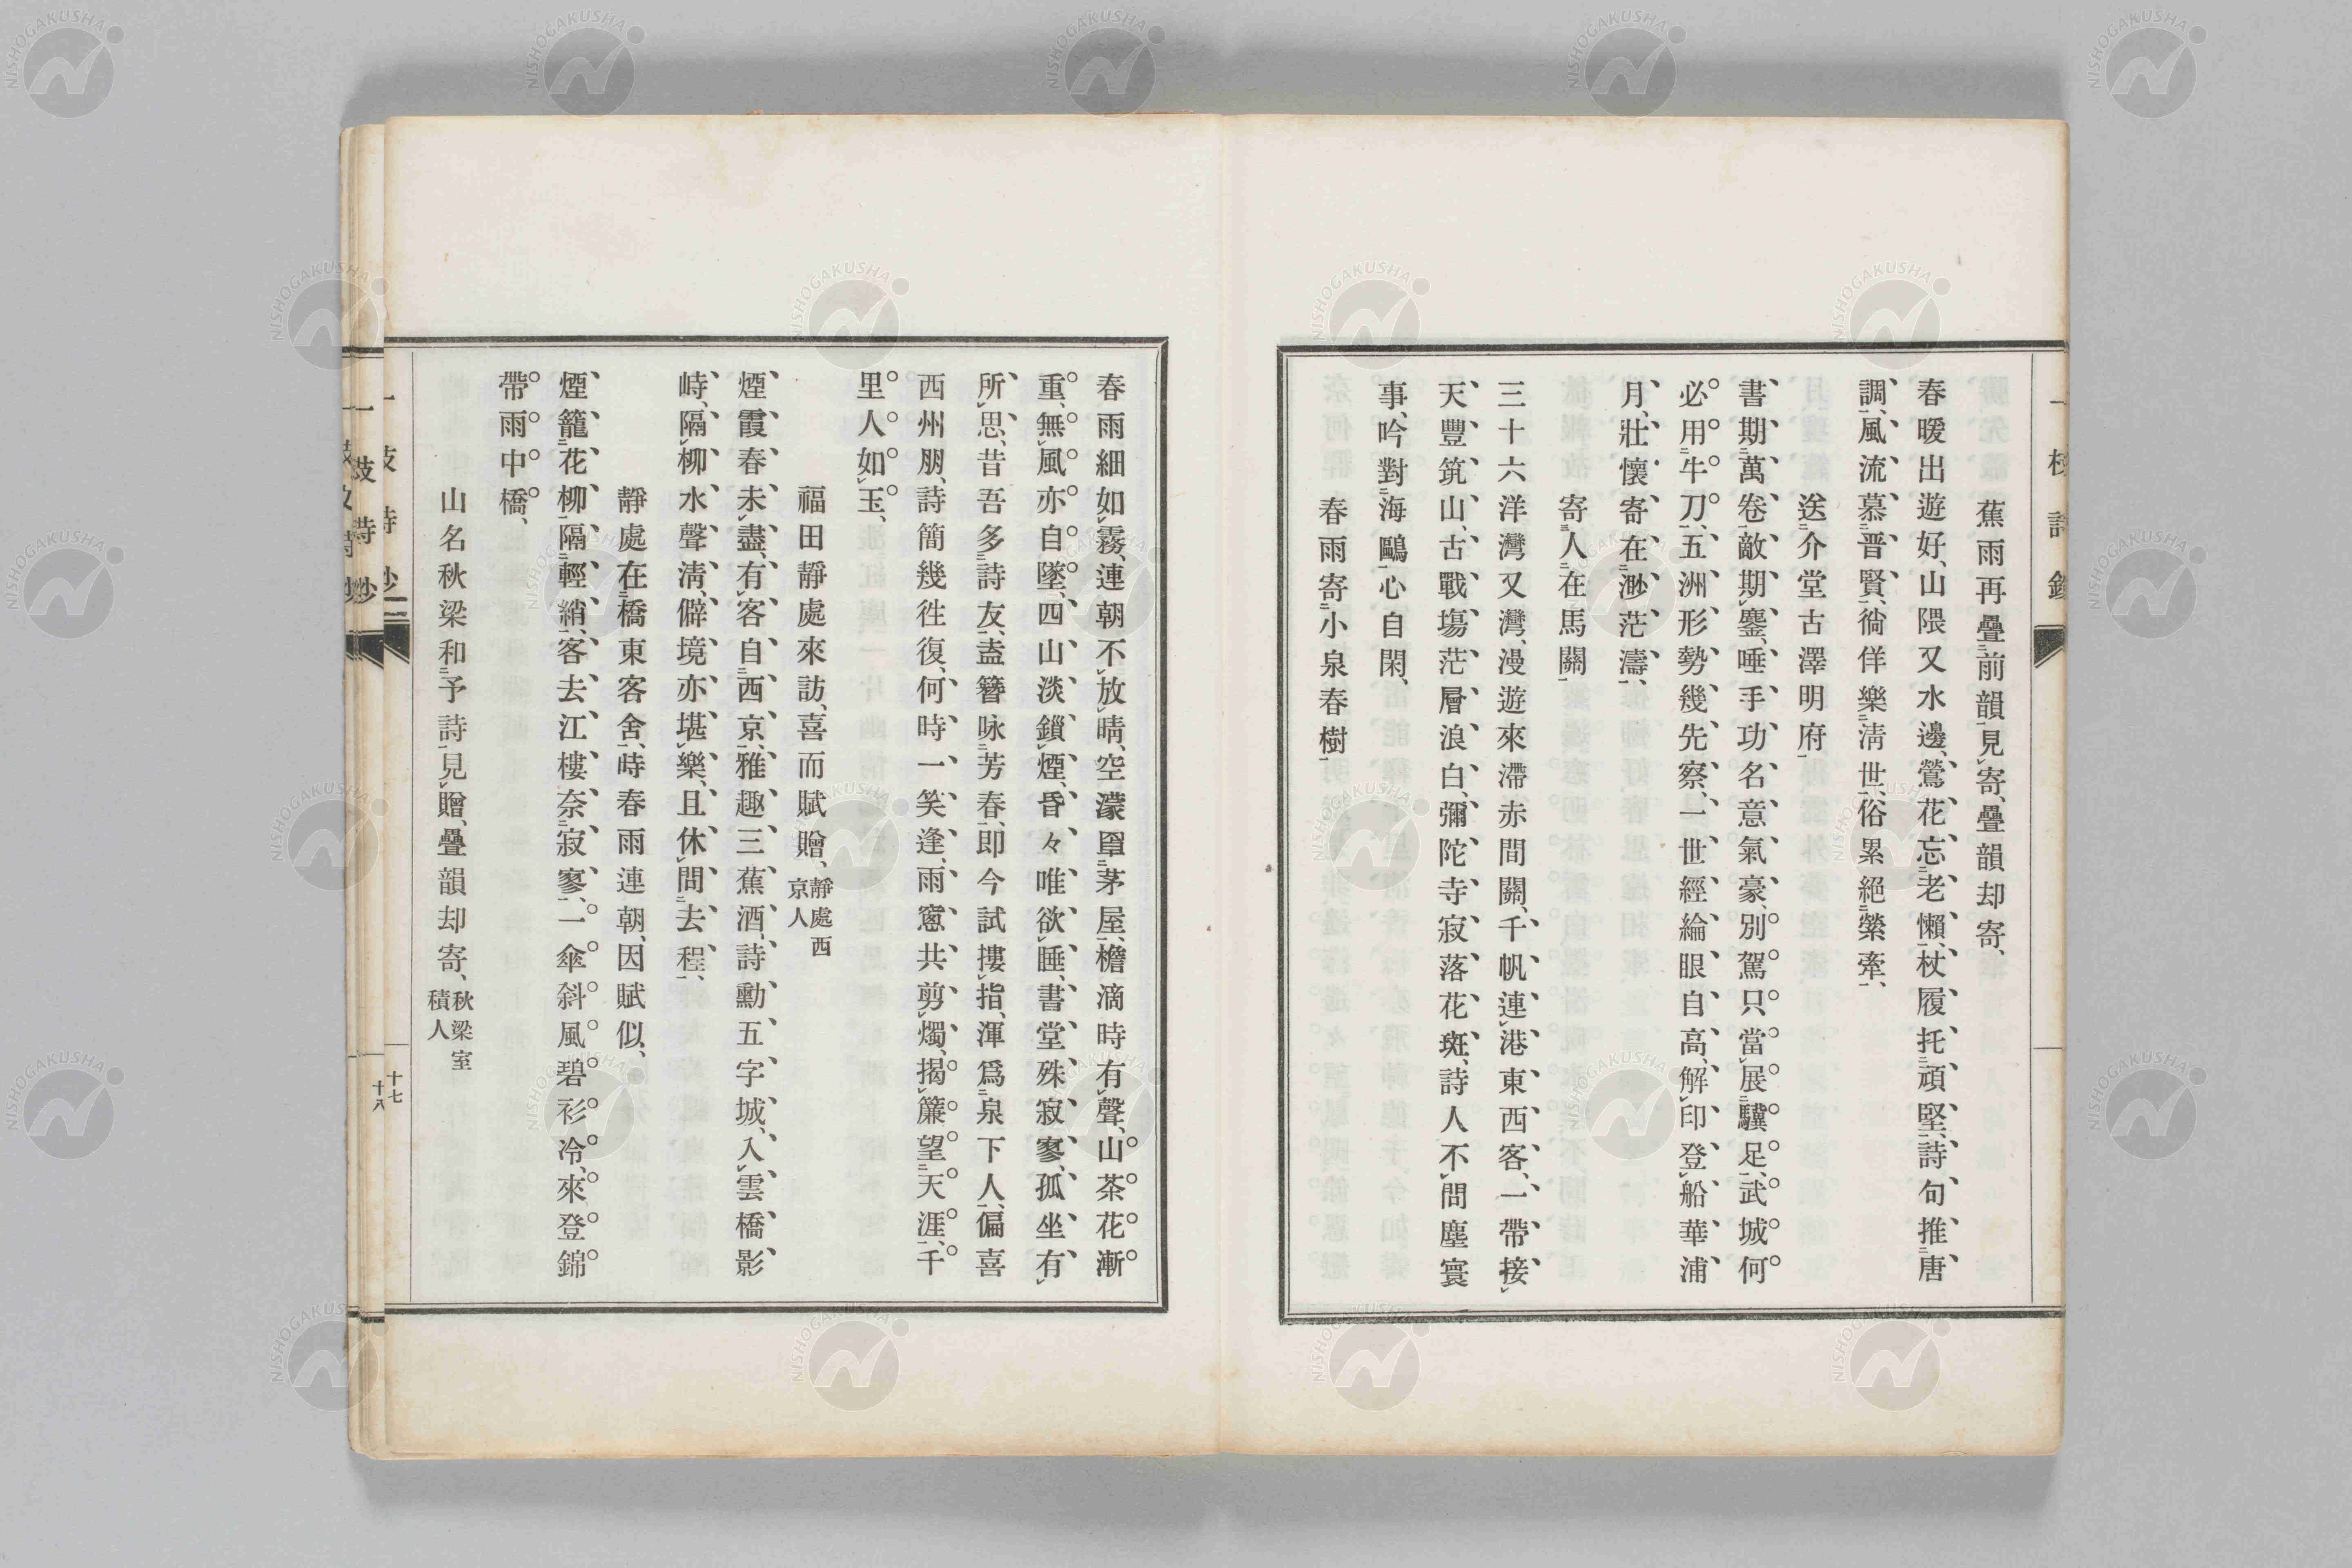 蕉雨再疊前韻見寄、疊韻却寄、
春暖出遊好、山隈又水邊、鶯花忘老懶、杖履托頑堅、詩句推唐
調、風流慕晋賢、徜佯樂淸世、俗累絕縈牽、
送介堂古澤明府
書期萬卷敵期鏖、唾手功名意氣豪、別駕只當展驥足、武城何
必用牛刀、五洲形勢幾先察、一世經綸眼自高、解印登船華浦
月、壯懷寄在渺茫濤、
寄人在馬關
三十六洋灣又灣、漫遊來滯赤間關、千帆連港東西客、一帶接
天豐筑山、古戰塲茫層浪白、彌陀寺寂落花斑、詩人不問塵寰
事、吟對海鷗心自閑、
春雨寄小泉春樹
春雨細如霧、連朝不放晴、空濛罩茅屋、檐滴時有聲、山茶花漸
重、無風亦自墜、四山淡鎖煙、昏々唯欲睡、書堂殊寂寥、孤坐有
所思、昔吾多詩友、盍簪咏芳春、即今試摟指、渾爲泉下人、偏喜
西州朋、詩簡幾徃復、何時一笑逢、雨窻共剪燭、揭簾望天涯、千
里人如玉、
福田靜處來訪、喜而賦贈、靜處西京人
煙霞春未盡、有客自西京、雅趣三蕉酒、詩勳五字城、入雲橋影
峙、隔柳水聲淸、僻境亦堪樂、且休問去程、
靜處在橋東客舍、時春雨連朝、因賦似、
煙籠花柳隔輕綃、客去江樓奈寂寥、一傘斜風碧衫冷、來登錦
帶雨中橋、
山名秋梁和予詩見贈、疊韻却寄、秋梁室積人
十七
十八